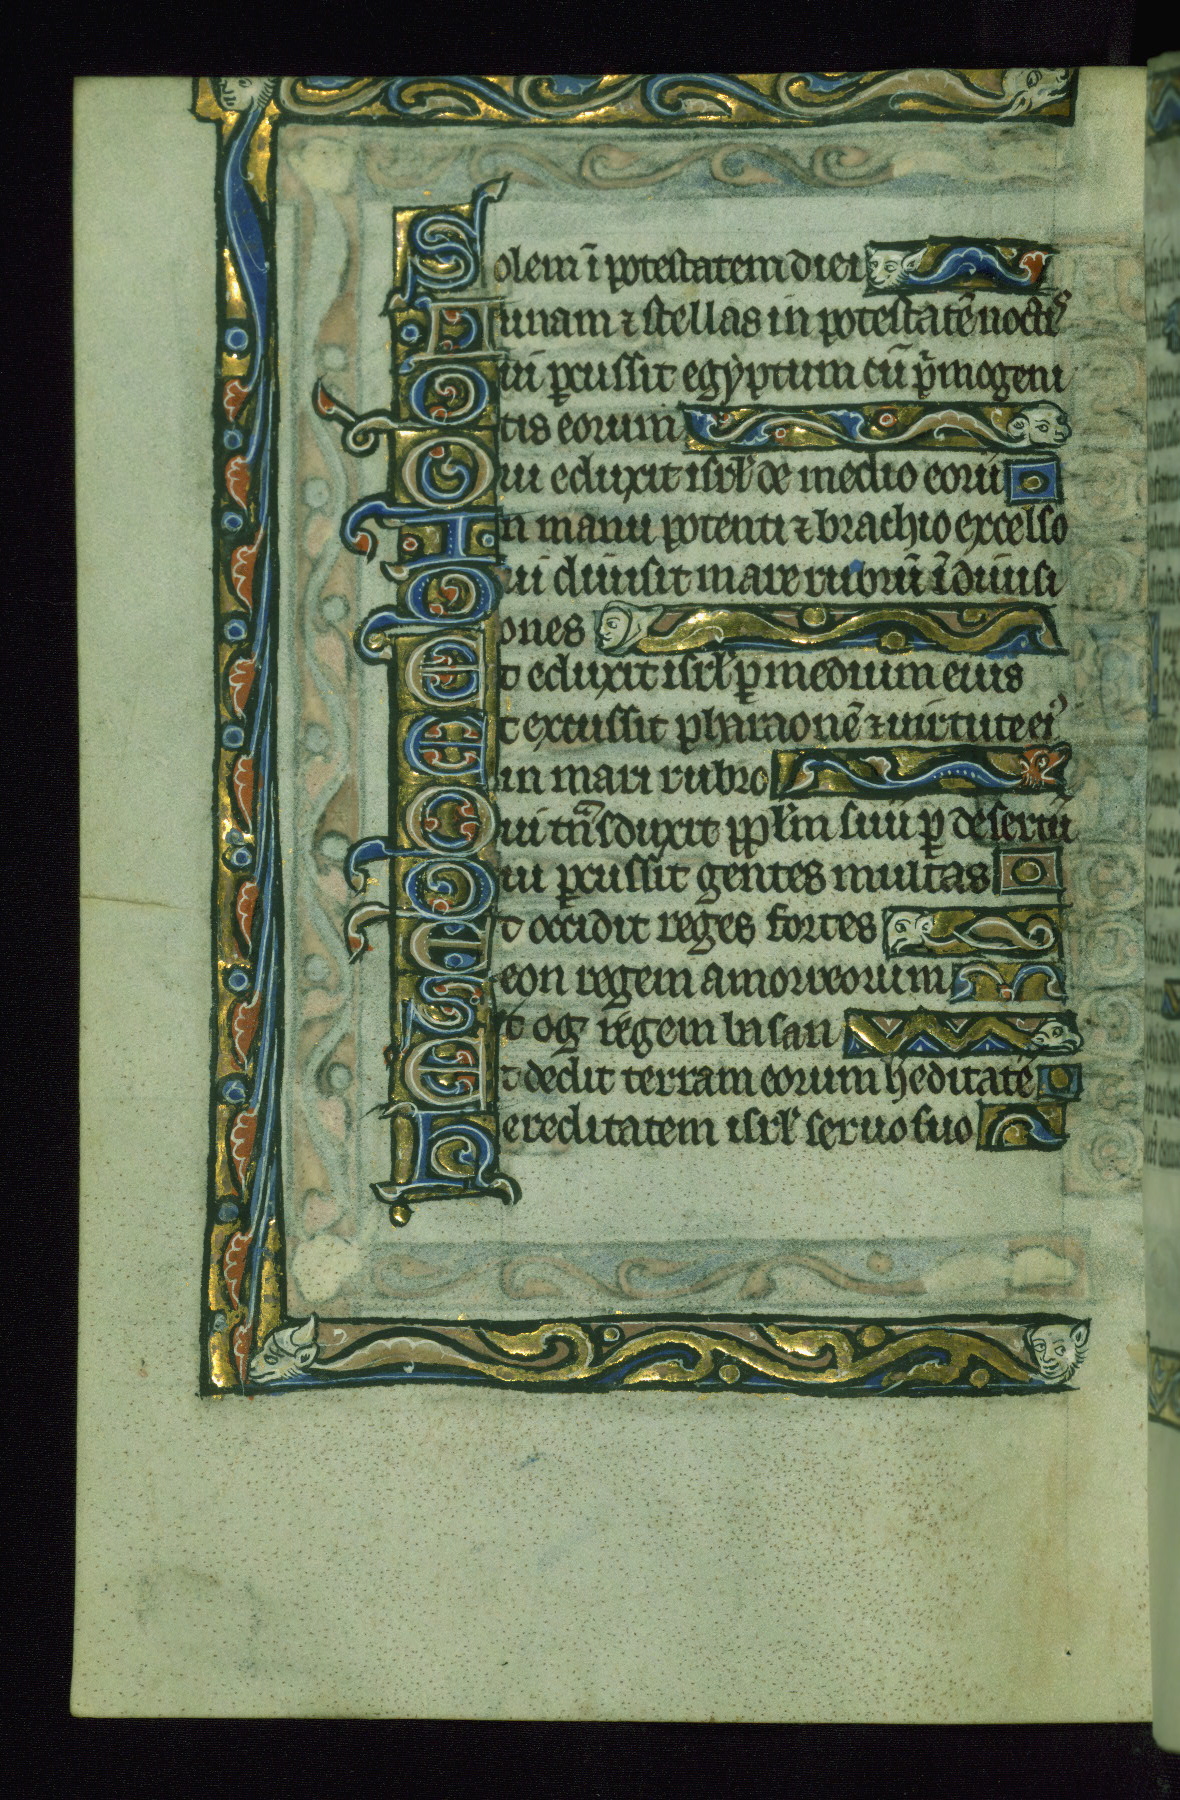 Solem ī potestatem diei
Lunam ⁊ stellas in potestatē noctis
Qui ꝑcussit egẏptum cū pͥmogeni
tis eorum
Qui eduxit isrł de medio eorū
In manu potenti ⁊ brachio excelso
Qui diuisit mare rubrū ī diuisi
ones
Et eduxit isrł ꝑ medium eius
Et excussit pharaonē ⁊ uirtutē eiꝰ
in mari rubro
Qui tnͣsduxit ppłm suū ꝑ desertū
Qui ꝑcussit gentes multas
Et occidit reges fortes
Seon regem amorreorum
Et og regem basan
Et dedit terram eorum heditatē
Hereditatem isrł seruo suo